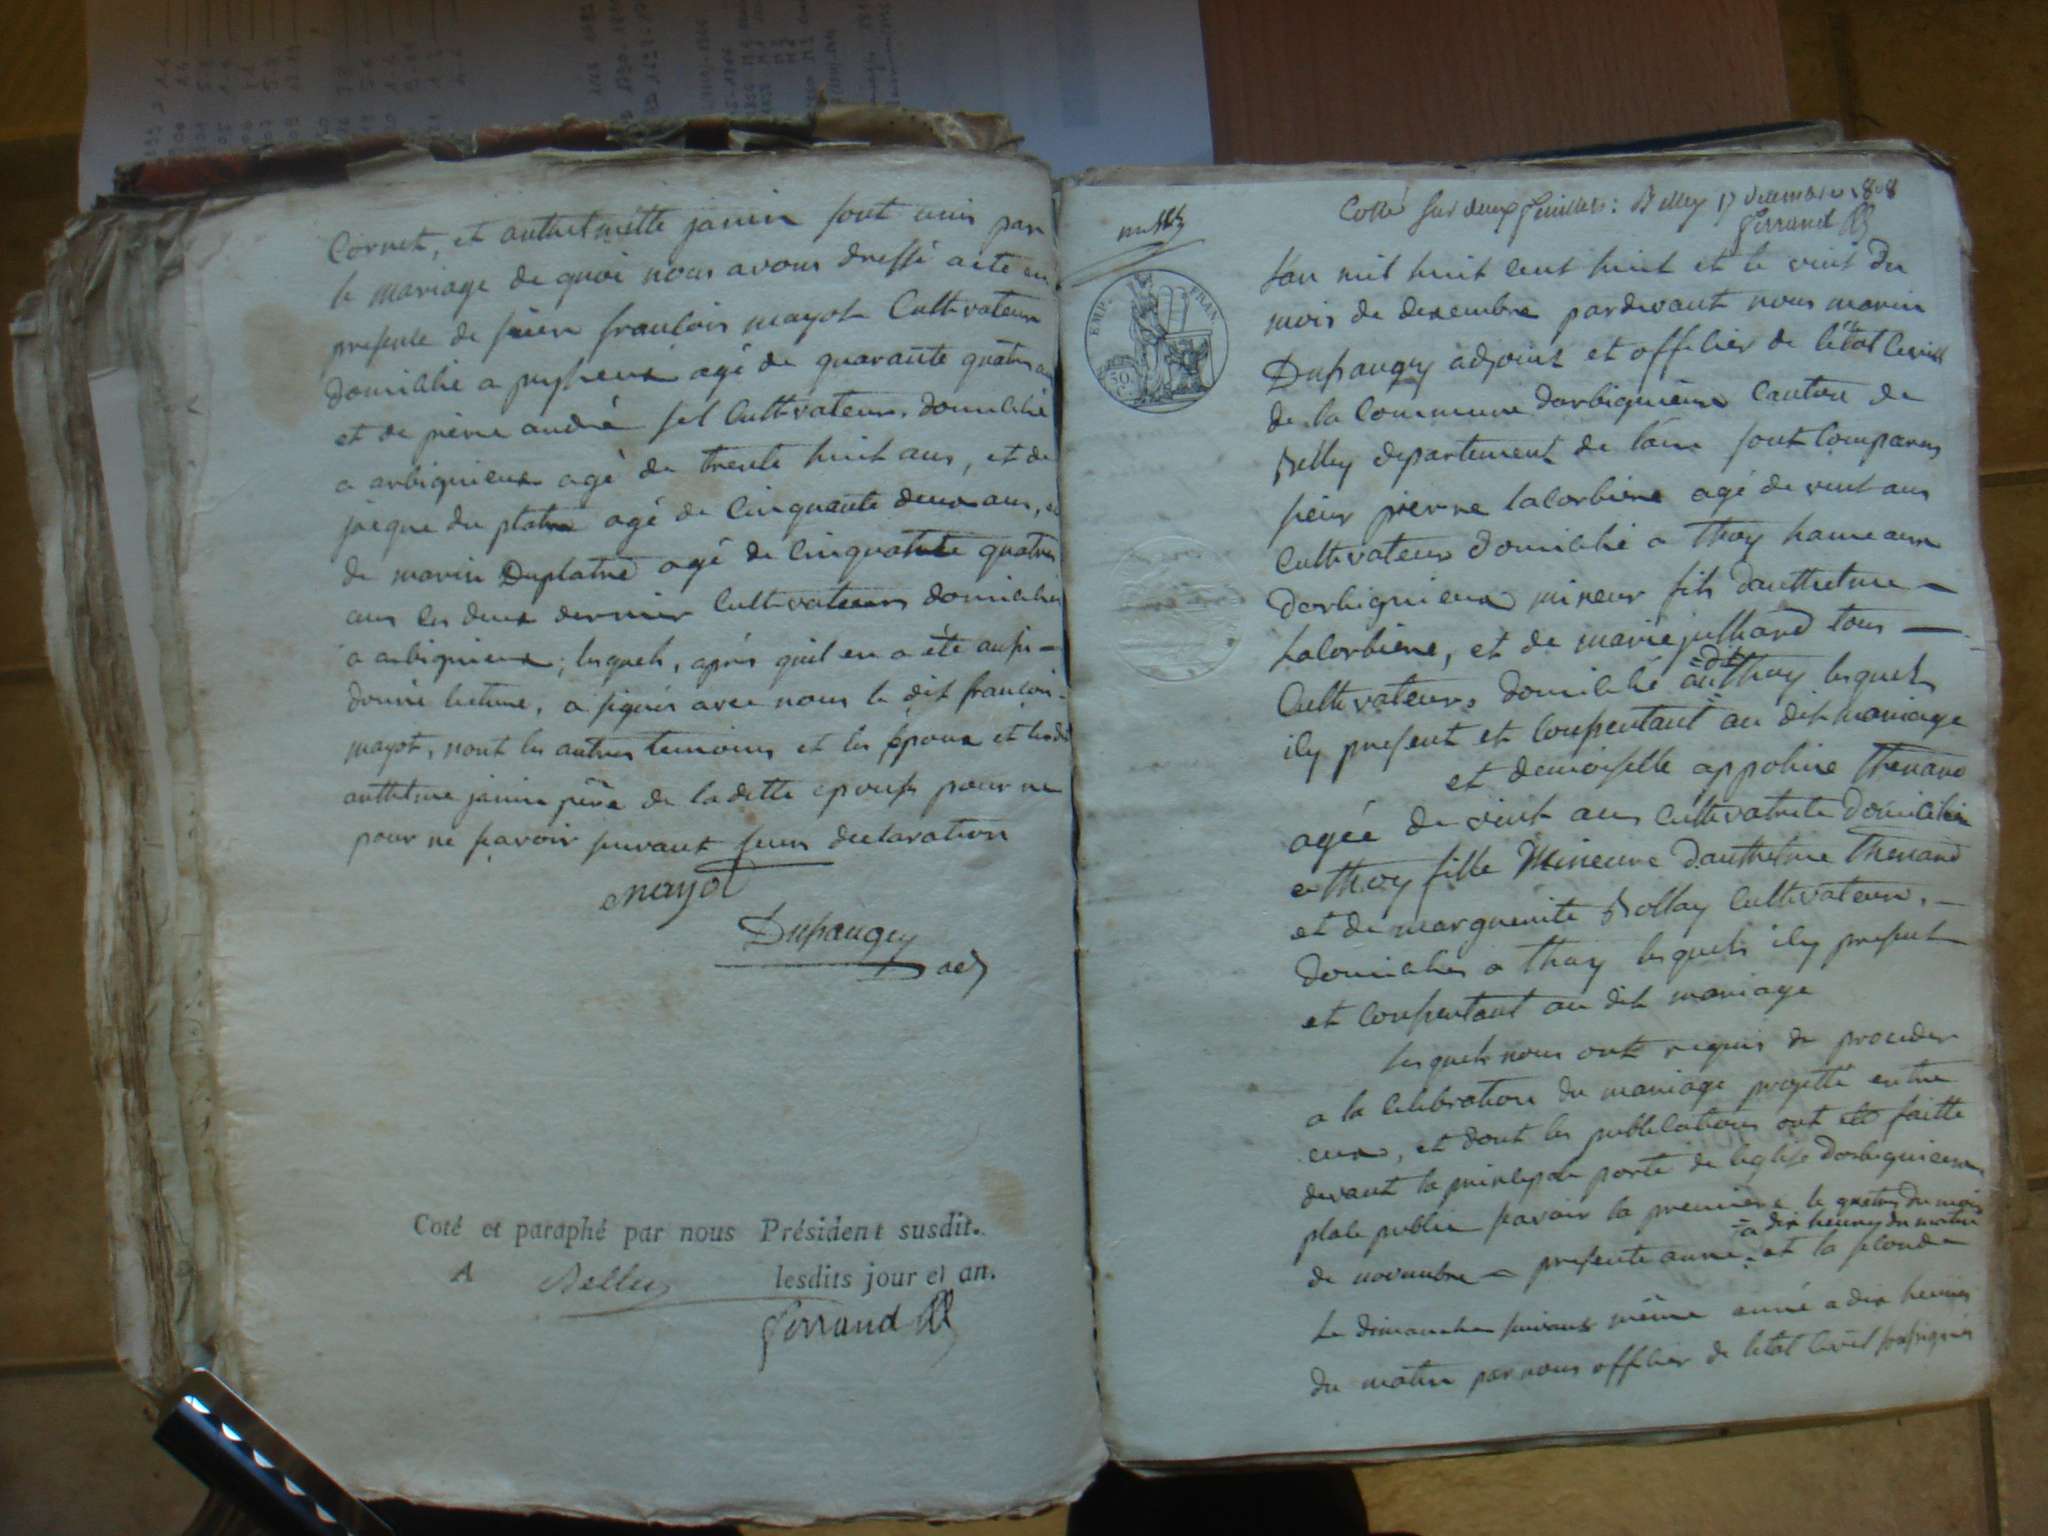 Cornet, et anthelmette janin sont unis par
le mariage de quoi nous avons dressé acte en
presence de sieur françois mayot Cultivateur
domicilié a peyrieux agé de quarante quatre
et de pierre andré sel Cultivateur, domicilié
a arbignieux agé de trente huit ans, et de
jacque du platre agé de cinquante deux ans, et
de marin Duplatre agé de cinquante quatre
ans les deux dernier Cultivateurs domiciliés
a arbignieux; lesquels, après quil en a été aussi
donné lecture, a signés avec nous le dit françois
mayot, nont les autres temoins et les époux et
anthelme janin père de la ditte epouse pour ne
pour ne sçavoir suivant leur declaration
mayot
Dupaugey
adj
Coté et paraphé par nous Président susdit.
A Belley lesdits jour et an.
Ferrand
Cotté sur deux feuillets: Belley 17 decembre 1808
Ferrand
EMP. FRAN
50
C.
Lan mil huit cent huit et le vint du
mois de desembre pardevant nous marin
Dupaugey adjoint et officier de létat Civil
de la Commune darbignieux Canton de
Belley departement de lain sont Comparus
sieur pierre lacorbiere agé de vint ans
Cultivateur domicilié a thoy hameaux
darbignieux mineur fils danthelme
Lacorbiere, et de marie julliand tous
Cultivateurs, domicilié audit thoy lesquels
icy present et Consentant au dit mariage
et demoiselle appoline Thenand
agée de vint ans cultivatrice domiciliée
a thoy fille Mineure danthelme Thenand
et de marguerite Bollay Cultivateur,
domiciliés a thoy lesquels icy present
et Consentant au dit mariage
lesquels nous ont requis de proceder
a la celebration du mariage projetté entre
eux, et dont les publications ont été faitte
devant la principale porte de léglise darbignieux
place public savoir la premiere le quatre du mois
a dix heures du matin
de novembre presente anné et la seconde
Le dimanche suivant même anné a dix heures
du matin par nous officier de létat civil soussignés